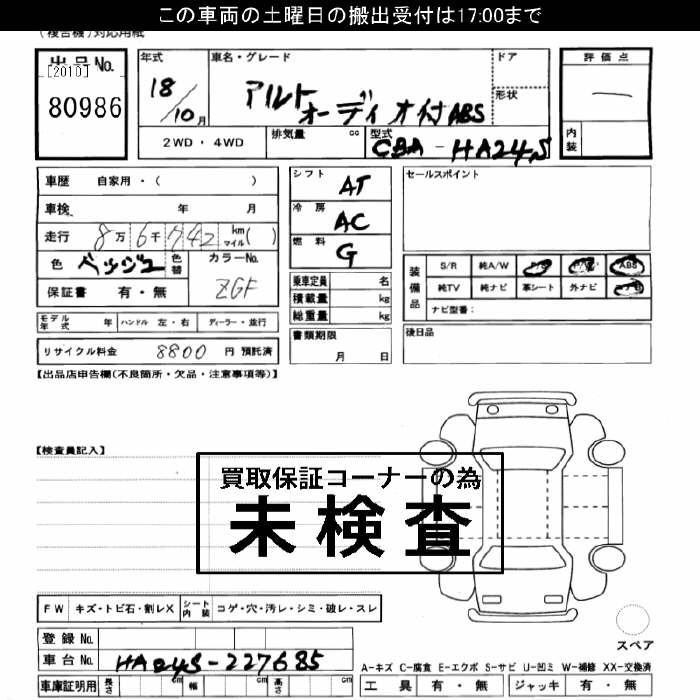 この車両の土曜日の搬出受付は17:00まで
(複合機)対応用紙
出品No.
[2010]
80986
年式
18/10月
車名・グレード
アルト
オーディオ付ABS
ドア
形状
評価点
—
内装
2WD・4WD
排気量 cc
型式
CBA-HA24S
車歴 自家用・( )
車検 年 月
走行 8万6千742 km マイル( )
色 ベージュ 色替 カラーNo. ZGF
保証書 有・無
シフト AT
冷房 AC
燃料 G
乗車定員 名
積載量 kg
総重量 kg
書類期限
月 日
セールスポイント
装備品
S/R 純A/W P/S P/W ABS
純TV 純ナビ 革シート 外ナビ
ナビ型番:
後日品
モデル年式 年 ハンドル 左・右 ディーラー・並行
リサイクル料金 8800 円 預託済
【出品店申告欄(不良箇所・欠品・注意事項等)】
【検査員記入】
買取保証コーナーの為
未検査
FW キズ・トビ石・割レX シート内装 コゲ・穴・汚レ・シミ・破レ・スレ
登録No.
車台No. HA24S-227685
車庫証明用 長さ cm 幅 cm 高さ cm
スペア
A-キズ C-腐食 E-エクボ S-サビ U-凹ミ W-補修 XX-交換済
工具 有・無 ジャッキ 有・無